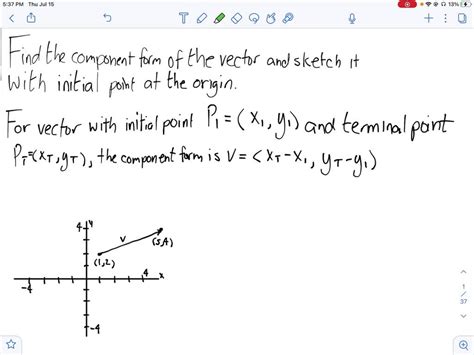 5:37 PM Thu Jul 15
13%
Find the component form of the vector and sketch it
with initial point at the origin.
For vector with initial point P₁ = (x₁, y₁) and terminal point
P_T=(x_T, y_T), the component form is V = <x_T-x₁, y_T-y₁)
4 y
V
(5,4)
(1,2)
-4
4
x
-4
1
37